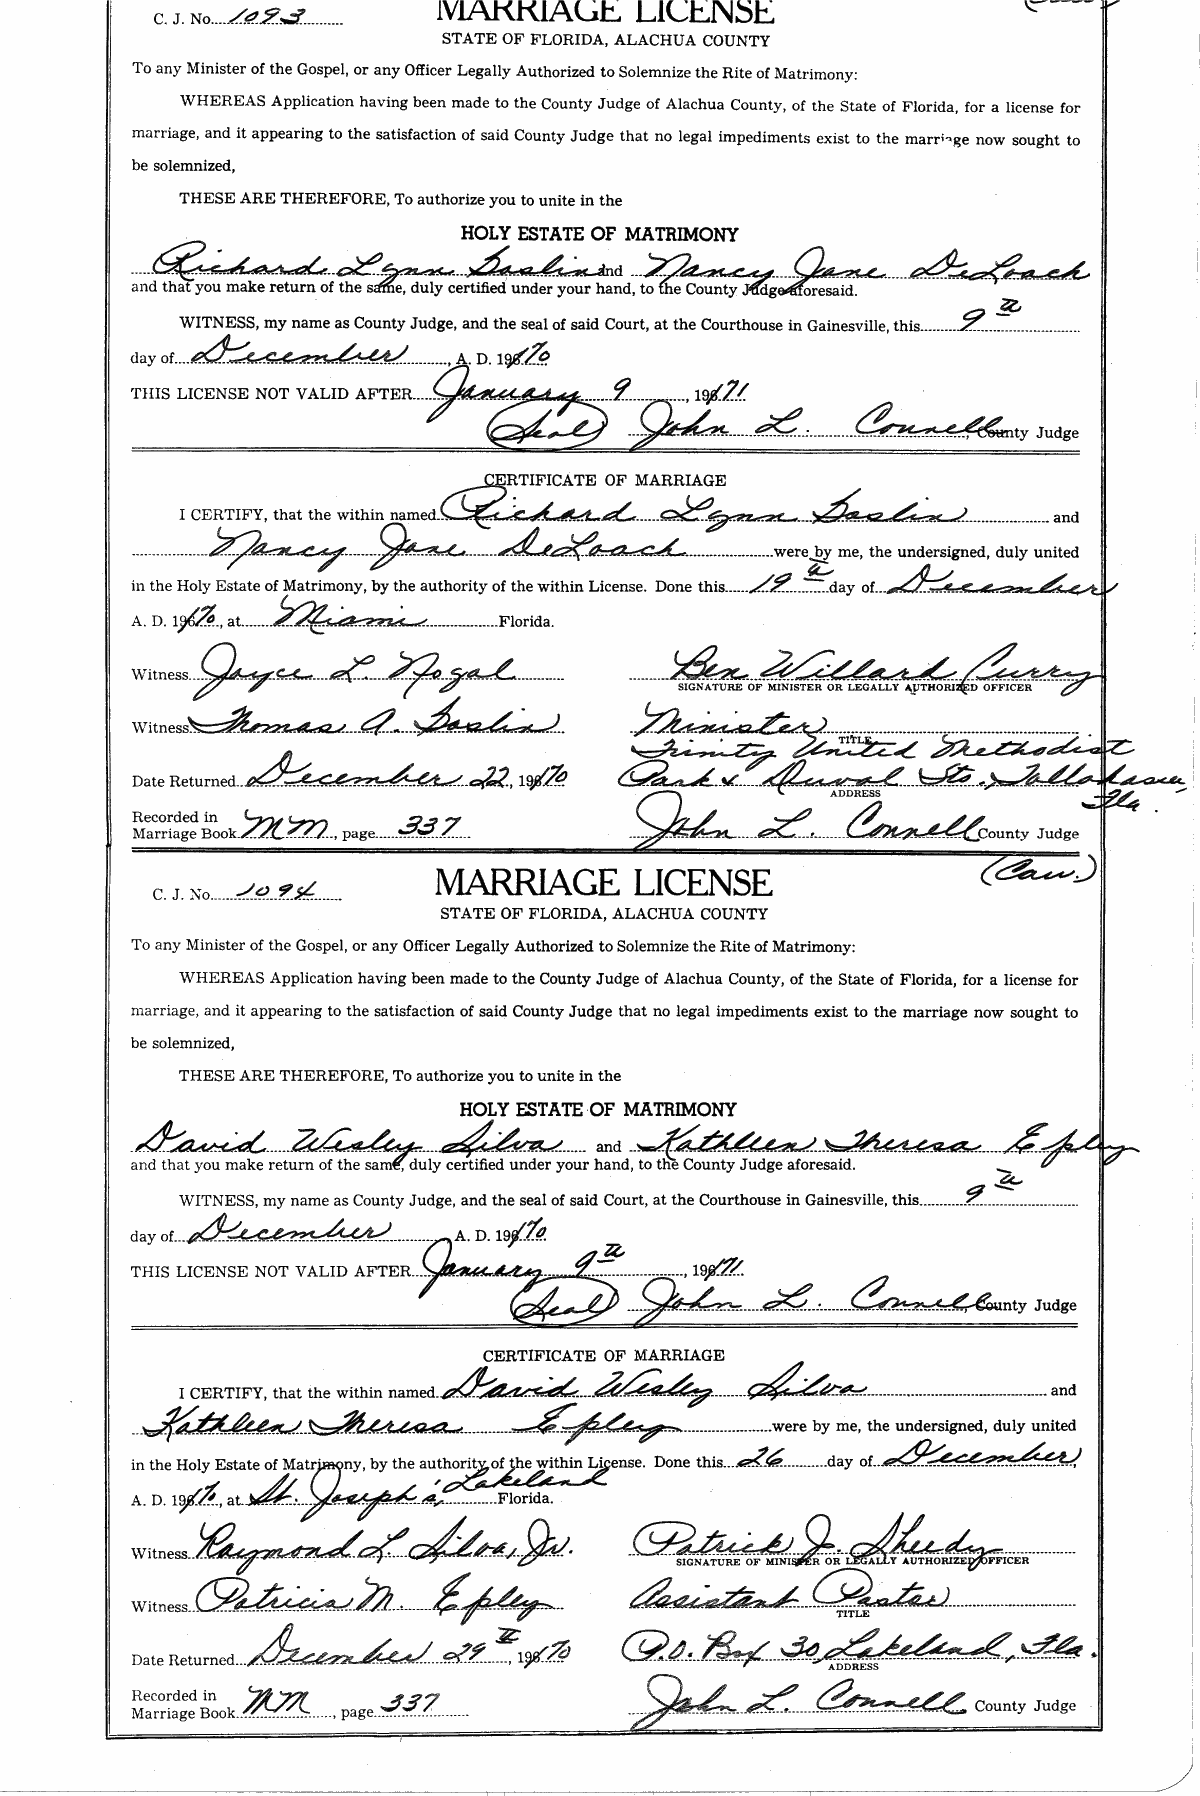 C. J. No. 1093
MARRIAGE LICENSE
STATE OF FLORIDA, ALACHUA COUNTY
To any Minister of the Gospel, or any Officer Legally Authorized to Solemnize the Rite of Matrimony:
WHEREAS Application having been made to the County Judge of Alachua County, of the State of Florida, for a license for
marriage, and it appearing to the satisfaction of said County Judge that no legal impediments exist to the marriage now sought to
be solemnized,
THESE ARE THEREFORE, To authorize you to unite in the
HOLY ESTATE OF MATRIMONY
Richard Lynn Joslin and Nancy Jane DeLoach
and that you make return of the same, duly certified under your hand, to the County Judge aforesaid.
WITNESS, my name as County Judge, and the seal of said Court, at the Courthouse in Gainesville, this 9th
day of December, A. D. 1970
THIS LICENSE NOT VALID AFTER January 9, 1971
(Seal) John L. Connell County Judge
CERTIFICATE OF MARRIAGE
I CERTIFY, that the within named Richard Lynn Joslin and
Nancy Jane DeLoach were by me, the undersigned, duly united
in the Holy Estate of Matrimony, by the authority of the within License. Done this 19th day of December
A. D. 1970, at Miami Florida.
Witness Joyce L. Nogal Ben Willard Curry
SIGNATURE OF MINISTER OR LEGALLY AUTHORIZED OFFICER
Witness Thomas A. Joslin Minister
TITLE
Trinity United Methodist
Date Returned December 22, 1970 Park & Duval Sts., Tallahassee,
ADDRESS
Fla.
Recorded in
Marriage Book MM, page 337 John L. Connell County Judge
(Cau.)
C. J. No. 1094
MARRIAGE LICENSE
STATE OF FLORIDA, ALACHUA COUNTY
To any Minister of the Gospel, or any Officer Legally Authorized to Solemnize the Rite of Matrimony:
WHEREAS Application having been made to the County Judge of Alachua County, of the State of Florida, for a license for
marriage, and it appearing to the satisfaction of said County Judge that no legal impediments exist to the marriage now sought to
be solemnized,
THESE ARE THEREFORE, To authorize you to unite in the
HOLY ESTATE OF MATRIMONY
David Wesley Silva and Kathleen Theresa Epley
and that you make return of the same, duly certified under your hand, to the County Judge aforesaid.
WITNESS, my name as County Judge, and the seal of said Court, at the Courthouse in Gainesville, this 9th
day of December A. D. 1970
THIS LICENSE NOT VALID AFTER January 9th, 1971
(Seal) John L. Connell County Judge
CERTIFICATE OF MARRIAGE
I CERTIFY, that the within named David Wesley Silva and
Kathleen Theresa Epley were by me, the undersigned, duly united
in the Holy Estate of Matrimony, by the authority of the within License. Done this 26 day of December,
A. D. 1970, at St. Joseph's, Lakeland Florida.
Witness Raymond L. Silva, Jr. Patrick J. Sheedy
SIGNATURE OF MINISTER OR LEGALLY AUTHORIZED OFFICER
Witness Patricia M. Epley Assistant Pastor
TITLE
Date Returned December 29th, 1970 P.O. Box 30, Lakeland, Fla.
ADDRESS
Recorded in
Marriage Book MM, page 337 John L. Connell County Judge